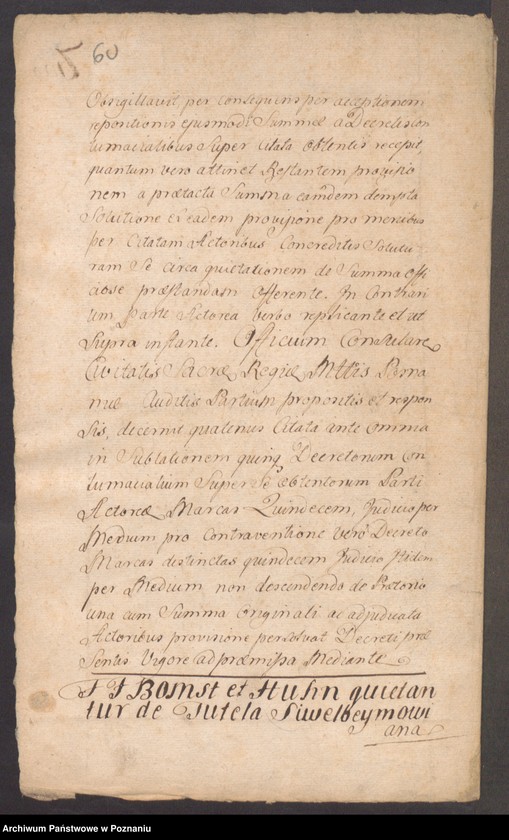 60
Obsigillavit, per consequens per acceptionem
repositionis ejusmodi Summæ a Decretis con
tumacialibus super citata obtentis recepit,
quantum vero attinet Restantem provisio
nem a prætacta Summa eamdem dempta
Solutione ex eadem provisione pro mercibus
per Citatam Actoribus Concreditis Solutu
ram Se circa quietationem de Summa offi
ciose præstandam Offerente. In Contrari
um Parte Actorea verbo replicante et ut
Supra instante. Officium Consulare
Civitatis Sacræ Regiæ Mttis Posna
niæ Auditis Partium propositis et respon
sis, decernit quatenus Citata ante omnia
in Sublationem quinq Decretorum con
tumacialium Super Se obtentorum Parti
Actoreæ Marcas Quindecem, Judicio per
Medium pro Contraventione vero Decreto
Marcas distinctas quindecem Judicio Itidem
per Medium non descendendo de Prætorio
una cum Summa originali ac adjudicata
Actoribus provisione persolvat Decreti præ
Sentis Vigore ad præmissa Mediante
et Hushn quietan
tur de Tutela
ana
Archiwum Państwowe w Poznaniu
szukajwarchiwach.gov.pl